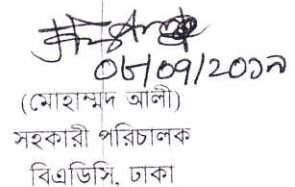 ০৮/০৭/২০১৯
(মোহাম্মদ আলী)
সহকারী পরিচালক
বিএডিসি, ঢাকা